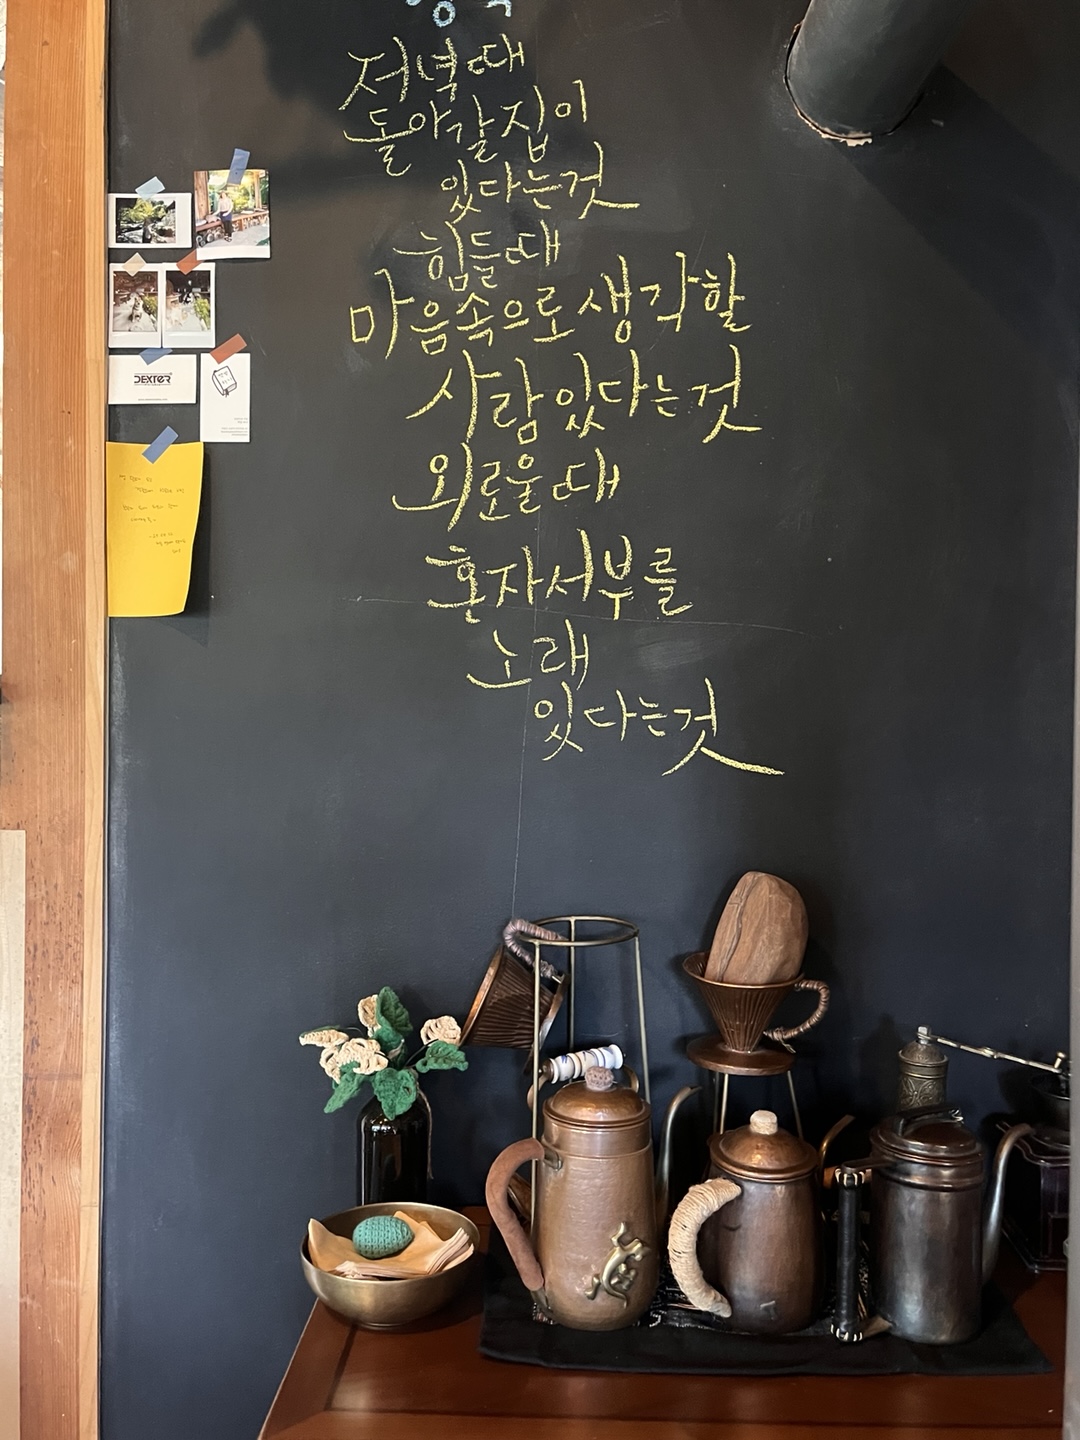 저녁 때
돌아갈 집이
있다는 것
힘들 때
마음속으로 생각할
사람 있다는 것
외로울 때
혼자서 부를
노래
있다는 것
DEXTER